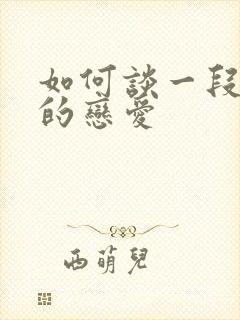 如何談一段
的戀愛
西萌兒